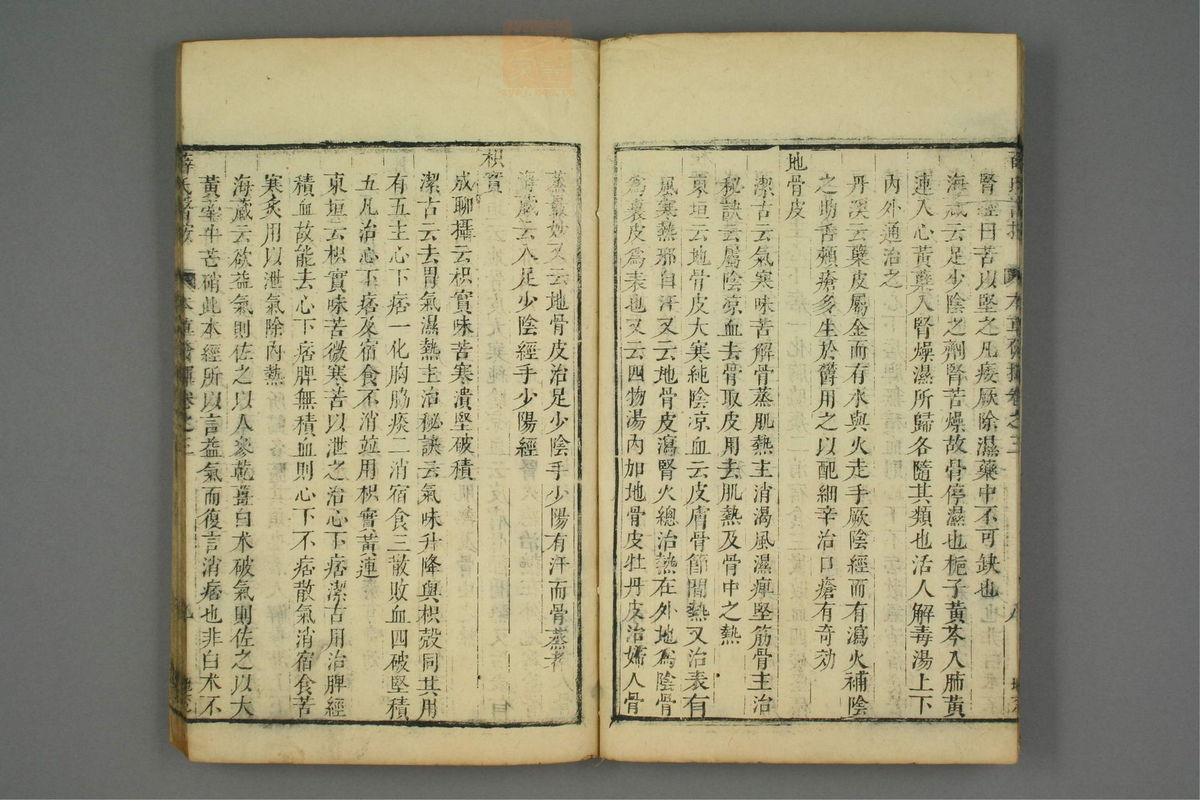 腎經曰苦以堅之凡痿厥除濕藥中不可缺也
海藏云足少陰之劑腎苦燥故骨停濕也梔子黃芩入肺黃
連入心黃蘗入腎燥濕所歸各隨其類也活人解毒湯上下
內外通治之
丹溪云蘗皮屬金而有水與火走手厥陰經而有瀉火補陰
之助舌頰瘡多生於欝用之以配細辛治口瘡有奇効
地骨皮
潔古云氣寒味苦解骨蒸肌熱主消渴風濕痺堅筋骨主治
秘訣云屬陰涼血去骨取皮用去肌熱及骨中之熱
東垣云地骨皮大寒純陰凉血云皮膚骨節間熱又治表有
風寒熱邪自汗又云地骨皮瀉腎火總治熱在外地爲陰骨
爲裏皮爲表也又云四物湯內加地骨皮牡丹皮治婦人骨
蒸最妙又云地骨皮治足少陰手少陽有汗而骨蒸者
海藏云入足少陰經手少陽經
枳實
成聊攝云枳實味苦寒潰堅破積
潔古云去胃氣濕熱主治秘訣云氣味升降與枳殼同其用
有五主心下痞一化胸脇痰二消宿食三散敗血四破堅積
五凡治心下痞及宿食不消竝用枳實黃連
東垣云枳實味苦微寒苦以泄之治心下痞潔古用治脾經
積血故能去心下痞脾無積血則心下不痞散氣消宿食苦
寒炙用以泄氣除內熱
海藏云欲益氣則佐之以人參乾薑白朮破氣則佐之以大
黃牽牛芒硝此本經所以言益氣而復言消痞也非白朮不
本草發揮卷之三
九